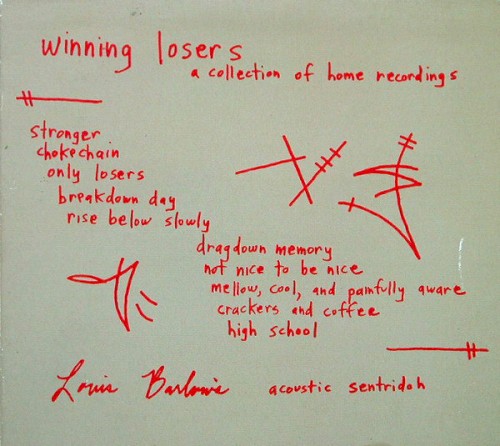 winning losers
a collection of home recordings
stronger
chokechain
only losers
breakdown day
rise below slowly
dragdown memory
not nice to be nice
mellow, cool, and painfully aware
crackers and coffee
high school
Louis Barlow's acoustic sentridoh